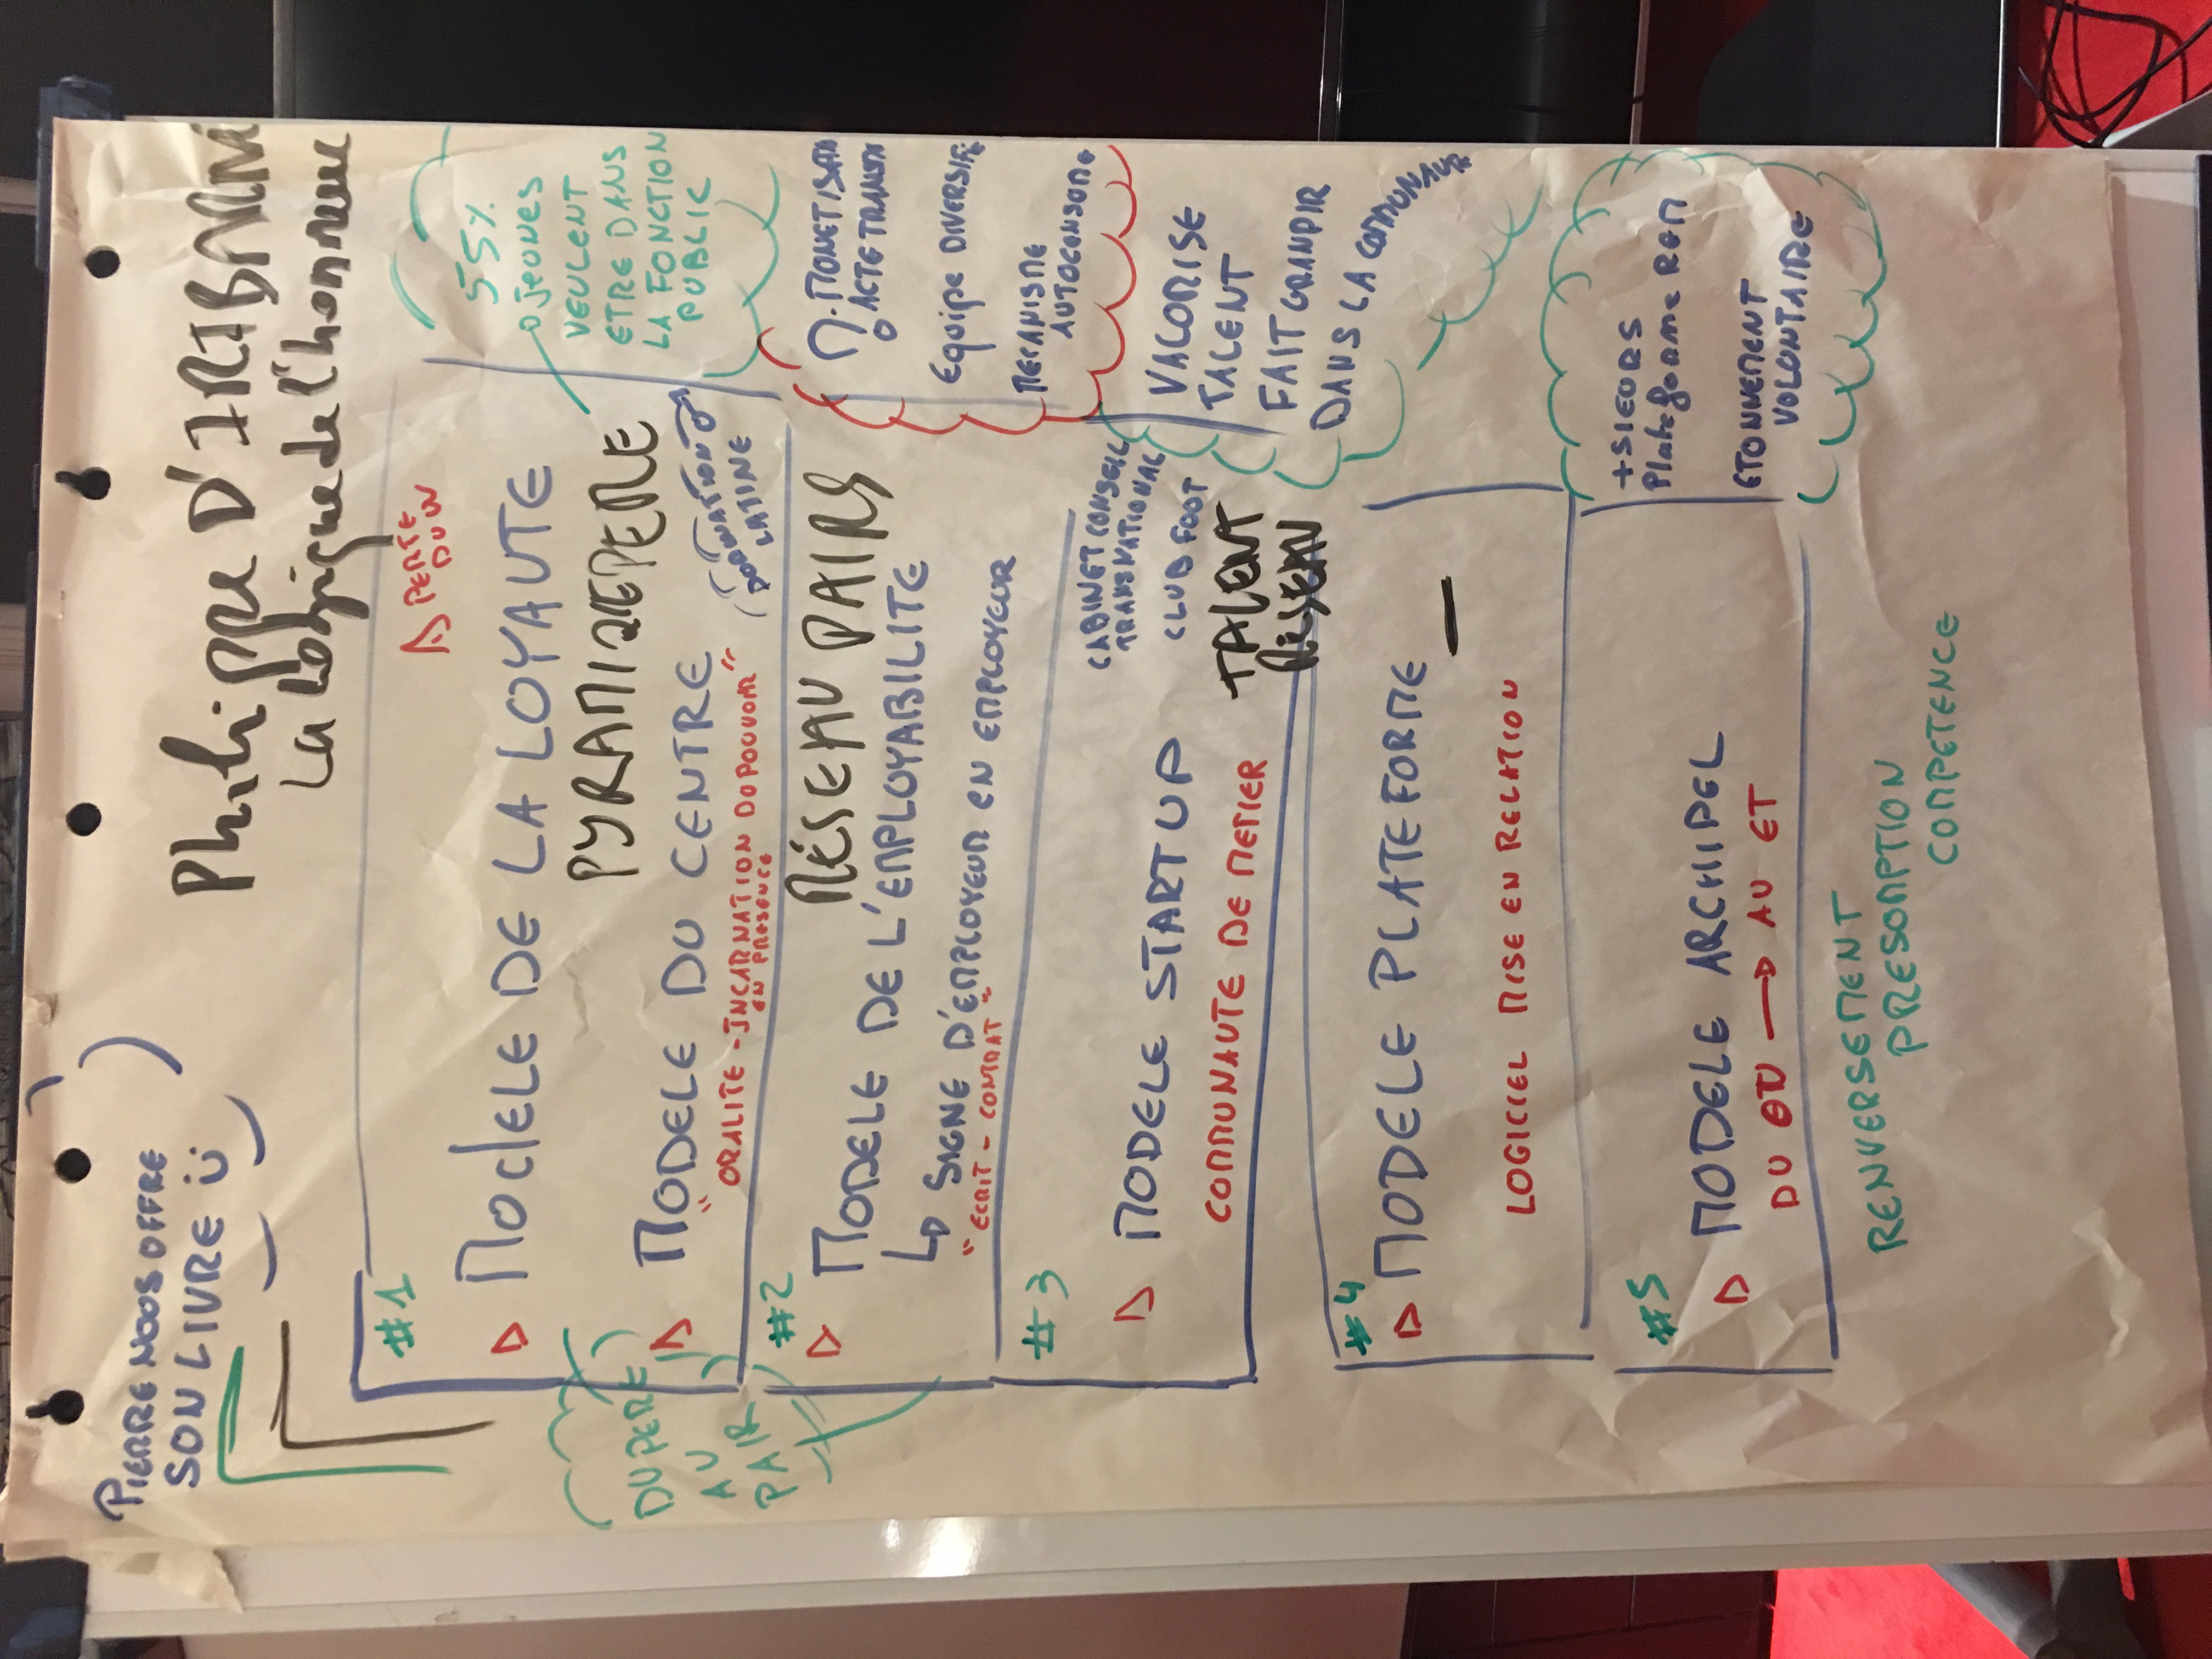 PIERRE NOUS OFFRE
SON LIVRE
Philippe D'IRIBARNE
La logique de l'honneur
#1
PERTE
DU LN
MODELE DE LA LOYAUTE
PYRAMIDE PERE
MODELE DU CENTRE
"ORALITE - INCARNATION DU POUVOIR"
EN PRESENCE
(DOMINATION
LATINE
55%
JEUNES
VEULENT
ETRE DANS
LA FONCTION
PUBLIC
DU PERE
AU
PAIR
#2
RÉSEAU PAIRS
MODELE DE L'EMPLOYABILITE
↳ SIGNE D'EMPLOYEUR EN EMPLOYEUR
"ECRIT - CONTRAT"
EQUIPE DIVERSIFIE
MECANISME
AUTOCENSURE
#3
CABINET CONSEIL
TRANSNATIONAL
CLUB FOOT
MODELE START UP
TALENT
RÉSEAU
COMMUNAUTE DE METIER
VALORISE
TALENT
FAIT GRANDIR
DANS LA COMMUNAUTE
#4
MODELE PLATEFORME —
LOGICIEL MISE EN RELATION
#5
MODELE ARCHIPEL
DU OU → AU ET
+SIEURS
Plateforme REM
ETONNEMENT
VOLONTAIRE
RENVERSEMENT
PRESOMPTION
COMPETENCE